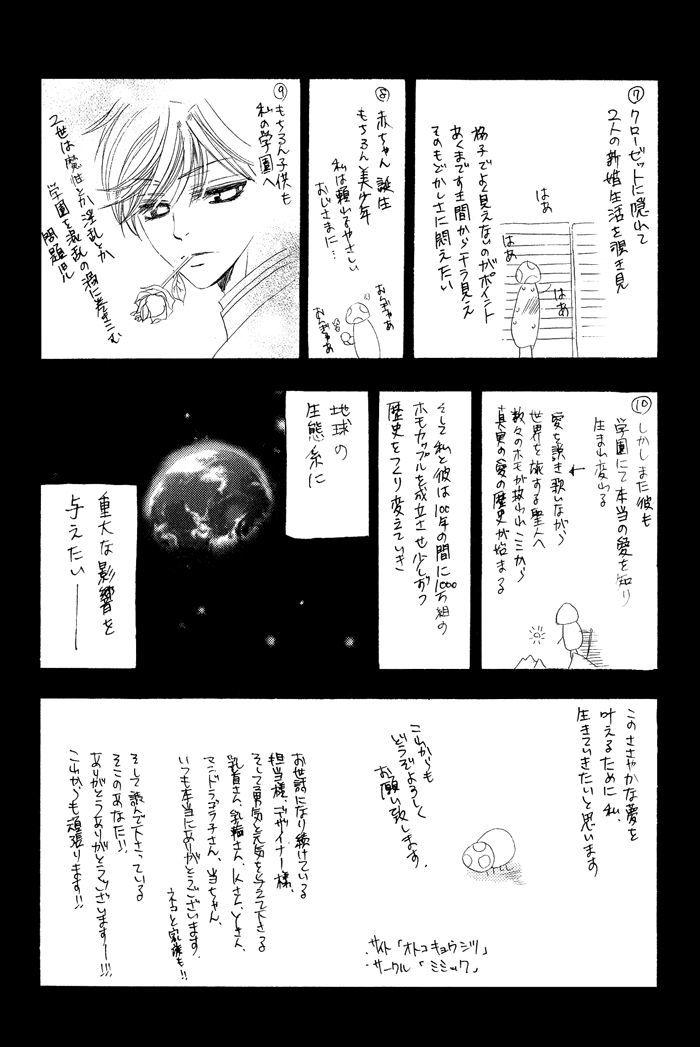 ⑦クローゼットに隠れて
2人の新婚生活を覗き見
格子でよく見えないのがポイント
あくまですき間からチラ見え
そのもどかしさに悶えたい
はあ
はあ
はあ
⑧赤ちゃん誕生
もちろん美少年
私は頼れるやさしい
おじさまに…
おぎゃあ
おぎゃあ
⑨もちろん子供も
私の学園へ
2世は魔性とか淫乱とか
学園を混乱の渦に巻き込む
問題児
⑩しかしまた彼も
学園にて本当の愛を知り
生まれ変わる
愛を説き歌いながら
世界を旅する聖人へ
数々のホモが救われここから
真実の愛の歴史が始まる
そして私と彼は100年の間に1000万組の
ホモカップルを成立させ少しずつ
歴史をつくり変えていき
地球の
生態系に
重大な影響を
与えたい――
このささやかな夢を
叶えるために私、
生きていきたいと思います
これからも
どうぞよろしく
お願い致します。
お世話になり続けている
担当様、デザイナー様、
そして勇気と元気を与えて下さる
Kさん、とさん、
マンドラゴラ子さん、当ちゃん、
いつも本当にありがとうございます。
ネコと家族も!!
そして読んで下さっている
そこのあなた!!
ありがとうありがとうございますー!!!
これからも頑張ります!!
サイト「オトコキョウシツ」
サークル「ミミック」